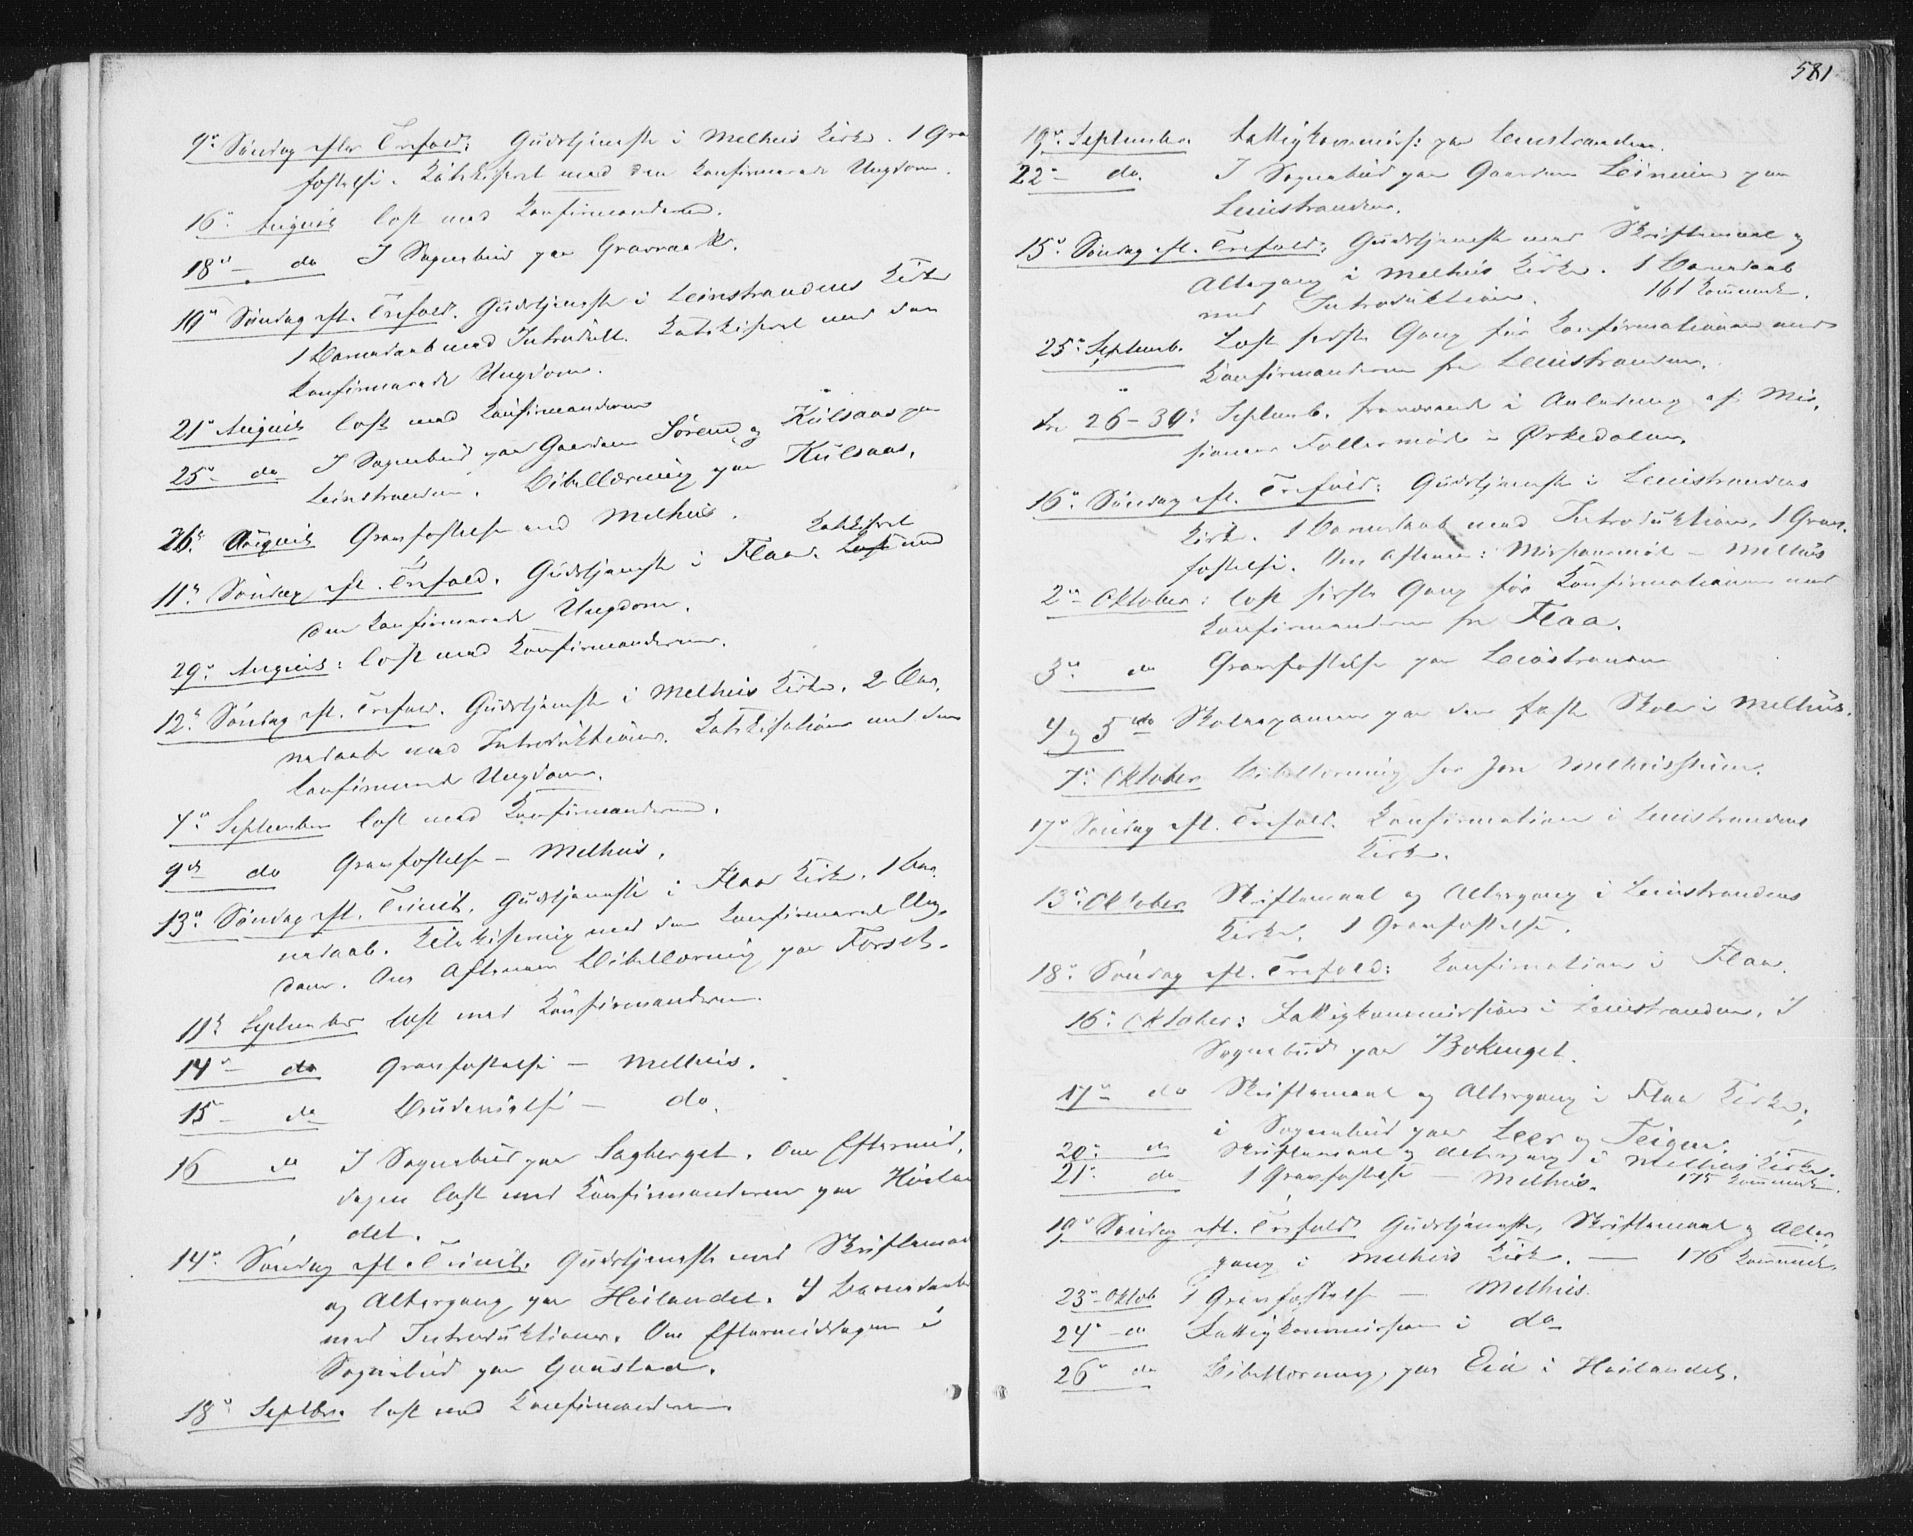 9de Søndag efter Trefold: Gudstjeneste i Melhus Kirke. 1 Gra
festelse. Katekiseret med den konfirmerede Ungdom.
16de August læst med Konfirmanderne.
18de do I Sognebud paa Gravraak.
10de Søndag eft. Trefold. Gudstjeneste i Leinstrandens Kirke
1 Barnedaab med Introdukt. Katekiseret med den
konfirmerede Ungdom.
21de August læst med Konfirmanderne
25de do I Sognebud paa Gaardene Sørem og Kulsaas paa
Leinstranden. Bibellæsning paa Kulsaas.
26de August Gravfæstelse ved Melhus.
11te Søndag eft. Trefold. Gudstjeneste i Flaa. Katekiseret med
den konfirmerede Ungdom.
29de August: læst med Konfirmanderne.
12te Søndag eft. Trefold. Gudstjeneste i Melhus Kirke. 2 Bar,
nedaab med Introduktioner. Katekisation med den
konfirmerede Ungdom.
4de September læst med Konfirmanderne.
9de do Gravfæstelse - Melhus.
13de Søndag eft. Trinit. Gudstjeneste i Flaa Kirke. 1 Bar,
nedaab. Katekisering med den konfirmerede Ung,
dom. Om Aftenen Bibellæsning paa Forset.
11te September læst med Konfirmanderne.
14de do Gravfæstelse - Melhus.
15 do Brudevielse - do.
16 do I Sognebud paa Sagberget. Om Eftermid,
dagen læst med Konfirmanderne paa Høilan
det.
14de Søndag eft. Trinit. Gudstjeneste med Skriftemaal
og Altergang paa Høilandet. 4 Barnedaab
med Introduktioner. Om Eftermiddagen i
Sognebud paa Gaustad.
18de Septbr. læst med Konfirmanderne
581
19de September Fattigkommiss: paa Leinstranden.
22de do. I Sognebud paa Gaarden paa
Leinstranden.
15de Søndag eft. Trefold: Gudstjeneste med Skriftemaal og
Altergang i Melhus Kirke. 1 Barnedaab
med Introduktion. 161 Kommunik.
25de Septemb. Læst første Gang før Konfirmationen med
Konfirmanderne fra Leinstranden.
Fra 26-30: Septemb. fraværende i Anledning af Mis,
sionens Fællesmøde i Ørkedalen.
16de Søndag eft. Trefold: Gudstjeneste i Leinstrandens
Kirke. 1 Barnedaab med Introduktion. 1 Grav,
fæstelse. Om Aftenen: Missionsmøde - Melhus
2den Oktober: læst sidste Gang før Konfirmationen med
Konfirmanderne fra Flaa.
3de do Gravfæstelse paa Leinstranden
4 og 5 do Skoleexamen paa den faste Skole i Melhus.
7de Oktober Bibellæsning hos Jon Melhussheim.
17de Søndag eft. Trefold. Konfirmation i Leinstrandens
Kirke.
13de Oktober Skriftemaal og Altergang i Leinstrandens
Kirke. 1 Gravfæstelse.
18de Søndag eft. Trefold: Konfirmation i Flaa.
16de Oktober: Fattigkommission i Leinstranden. I
Sognebud paa
17de do Skriftemaal og Altergang i Flaa Kirke,
i Sognebud paa Leer og Teigen.
20de do Skriftemaal og Altergang i Melhus Kirke.
21de do 1 Gravfæstelse - Melhus. 175 Kommunik.
19de Søndag eft. Trefold Gudstjeneste, Skriftemaal og Alter,
gang i Melhus Kirke. — 176 Kommunik.
23de Oktob 1 Gravfæstelse — Melhus.
24de do Fattigkommission i do
26de do Bibellæsning paa Eid i Høilandet.